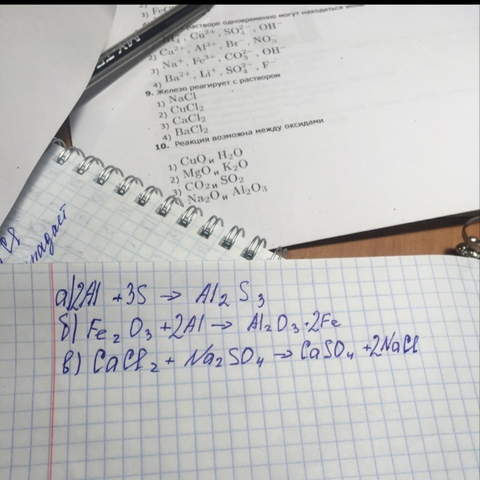 3) Fe
растворе одновременно могут находиться
Cu²⁺, SO₄²⁻, OH⁻
2) Ca²⁺, Al³⁺, Br⁻, NO₃⁻
3) Na⁺, Fe³⁺, CO₃²⁻, OH⁻
4) Ba²⁺, Li⁺, SO₄²⁻, F⁻
9. Железо реагирует с раствором
1) NaCl
2) CuCl₂
3) CaCl₂
4) BaCl₂
10. Реакция возможна между оксидами
1) CuO и H₂O
2) MgO и K₂O
3) CO₂ и SO₂
Na₂O и Al₂O₃
а) 2Al + 3S → Al₂S₃
б) Fe₂O₃ + 2Al → Al₂O₃ + 2Fe
в) CaCl₂ + Na₂SO₄ → CaSO₄ + 2NaCl